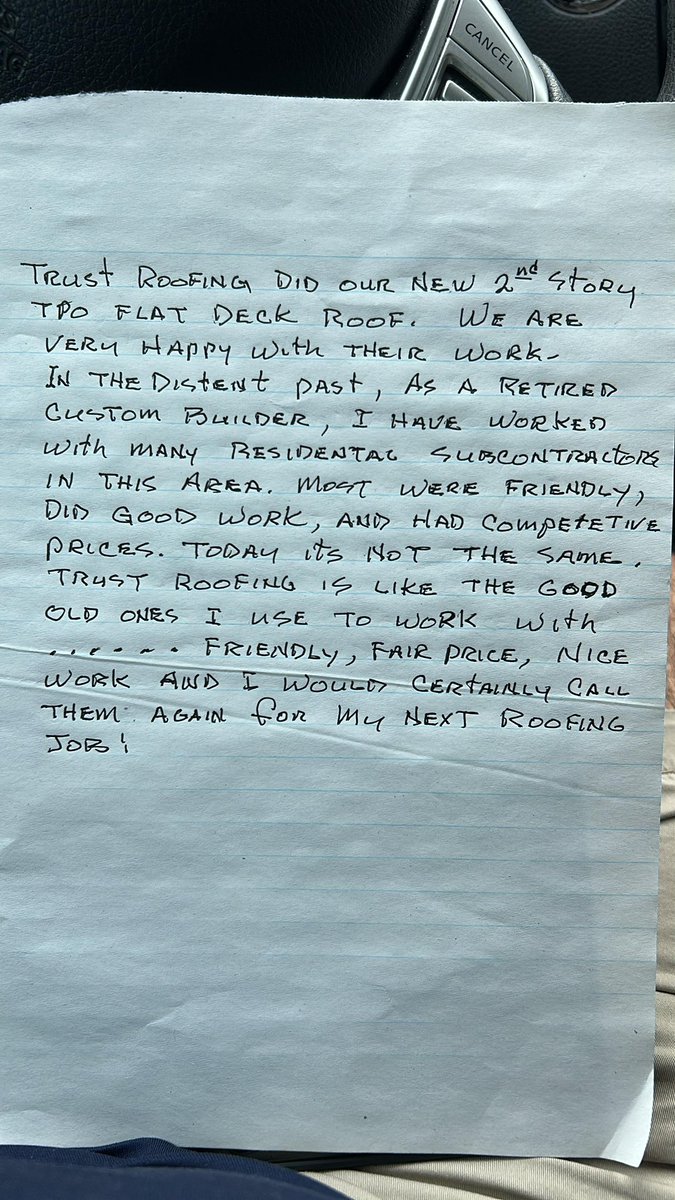 CANCEL
TRUST ROOFING DID OUR NEW 2nd STORY
TPO FLAT DECK ROOF. WE ARE
VERY HAPPY WITH THEIR WORK-
IN THE DISTENT PAST, AS A RETIRED
CUSTOM BUILDER, I HAVE WORKED
WITH MANY RESIDENTAL SUBCONTRACTORS
IN THIS AREA. MOST WERE FRIENDLY,
DID GOOD WORK, AND HAD COMPETETIVE
PRICES. TODAY ITS NOT THE SAME.
TRUST ROOFING IS LIKE THE GOOD
OLD ONES I USE TO WORK WITH
...... FRIENDLY, FAIR PRICE, NICE
WORK AND I WOULD CERTAINLY CALL
THEM AGAIN FOR MY NEXT ROOFING
JOB!